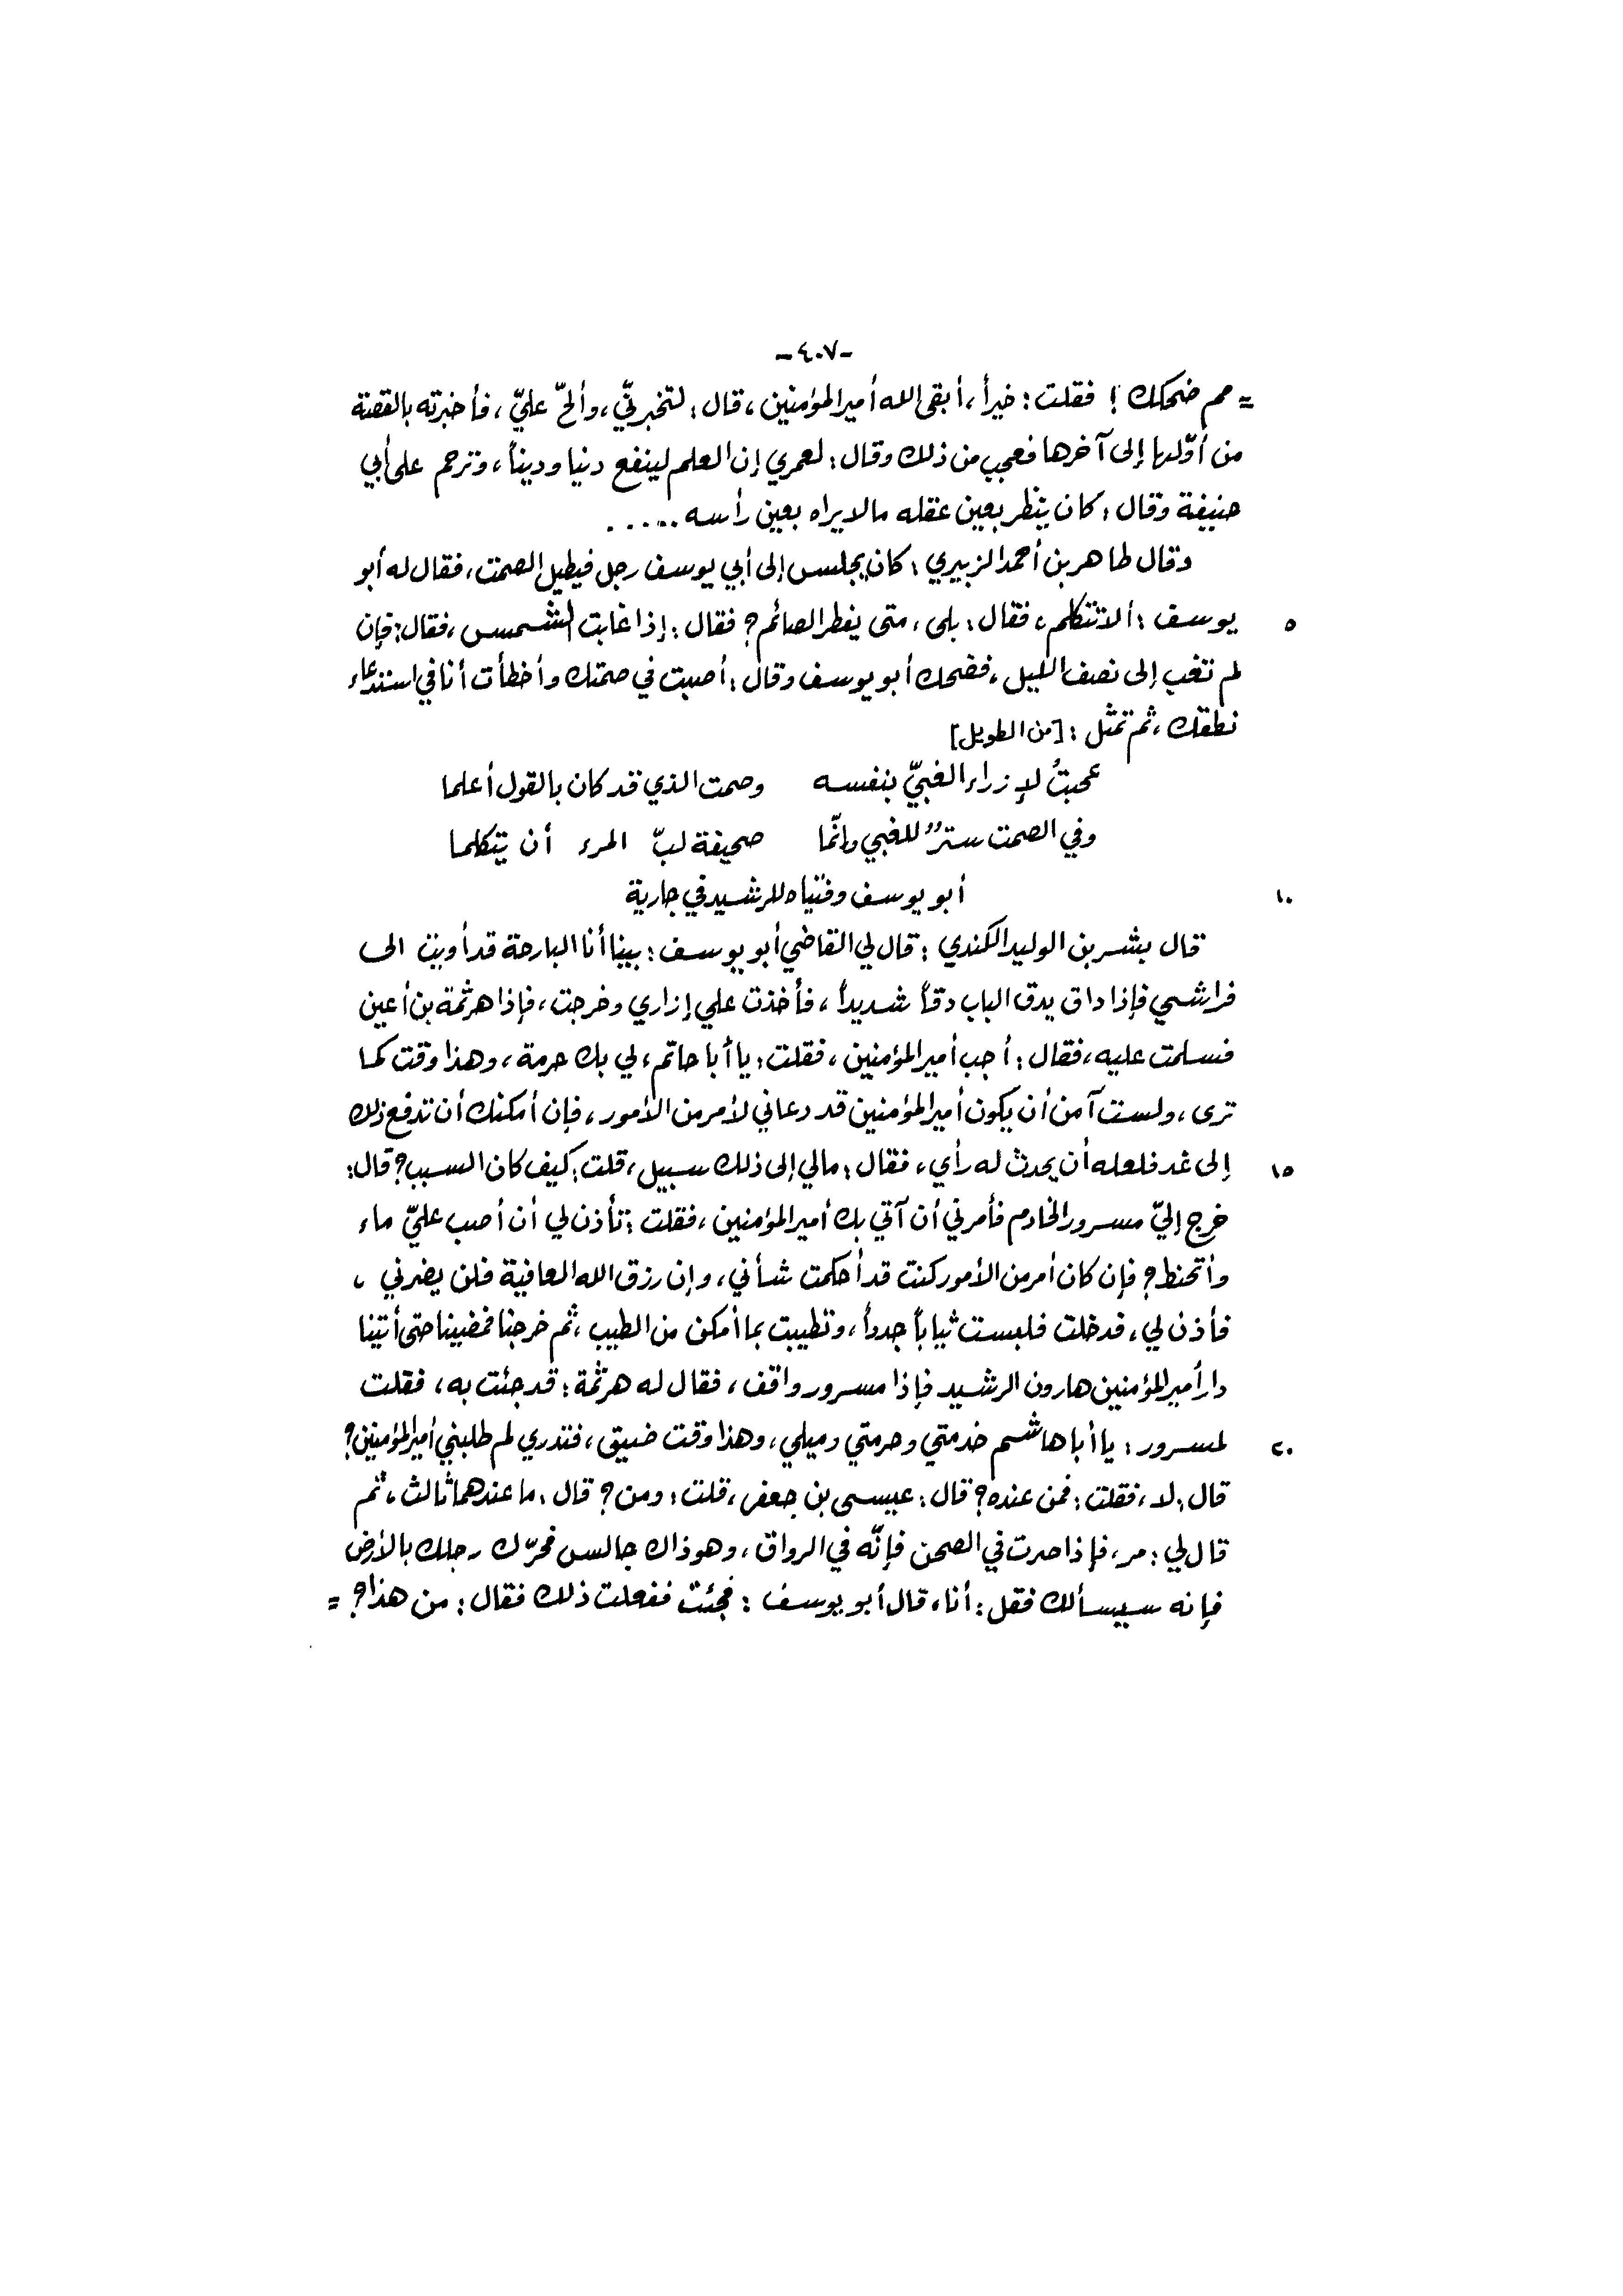 -٤٠٧-
= مم ضحكك ! فقلت : خيراً ، أبقى الله أمير المؤمنين ، قال : لتخبرنّي ، وألحّ عليّ ، فأخبرته بالقصة
من أوّلها إلى آخرها فعجب من ذلك وقال : لعمري إن العلم لينفع دنيا وديناً ، وترحم على أبي
حنيفة وقال : كان ينظر بعين عقله مالا يراه بعين رأسه .....
وقال طاهر بن أحمد الزبيري : كان يجلس إلى أبي يوسف رجل فيطيل الصمت ، فقال له أبو
٥ يوسف : ألا تتكلم ، فقال : بلى ، متى يفطر الصائم ؟ فقال : إذا غابت الشمس ، فقال : فإن
لم تغب إلى نصف الليل ، فضحك أبو يوسف وقال : أصبت في صمتك وأخطأت أنا في استدعاء
نطقك ، ثم تمثل : [من الطويل]
عجبتُ لإزراء الغبيّ بنفسه وصمت الذي قد كان بالقول أعلما
وفي الصمت سترٌ للغبي وإنّما صحيفة لبّ المرء أن يتكلما
١٠ أبو يوسف وفتياه للرشيد في جارية
قال بشر بن الوليد الكندي : قال لي القاضي أبو يوسف : بينا أنا البارحة قد أويت الى
فراشي فإذا داق يدق الباب دقاً شديداً ، فأخذت علي إزاري وخرجت ، فإذا هرثمة بن أعين
فسلمت عليه ، فقال : أجب أمير المؤمنين ، فقلت : يا أبا حاتم ، لي بك حرمة ، وهذا وقت كما
ترى ، ولست آمن أن يكون أمير المؤمنين قد دعاني لأمر من الأمور ، فإن أمكنك أن تدفع ذلك
١٥ إلى غد فلعله أن يحدث له رأي ، فقال : مالي إلى ذلك سبيل ، قلت : كيف كان السبب ؟ قال :
خرج إليّ مسرور الخادم فأمرني أن آتي بك أمير المؤمنين ، فقلت : تأذن لي أن أصب عليّ ماء
وأتحنط ؟ فإن كان أمر من الأمور كنت قد أحكمت شأني ، وإن رزق الله العافية فلن يضرني ،
فأذن لي ، فدخلت فلبست ثياباً جدداً ، وتطيبت بما أمكن من الطيب ، ثم خرجنا فمضينا حتى أتينا
دار أمير المؤمنين هارون الرشيد فإذا مسرور واقف ، فقال له هرثمة : قد جئت به ، فقلت
٢٠ لمسرور : يا أبا هاشم خدمتي وحرمتي وميلي ، وهذا وقت ضيق ، فتدري لم طلبني أمير المؤمنين ؟
قال : لا ، فقلت : فمن عنده ؟ قال : عيسى بن جعفر ، قلت : ومن ؟ قال : ما عندهما ثالث ، ثم
قال لي : مر ، فإذا صرت في الصحن فإنّه في الرواق ، وهو ذاك جالس فحرّك رجلك بالأرض
فإنه سيسألك فقل : أنا ، قال أبو يوسف : فجئت ففعلت ذلك فقال : من هذا ؟ =